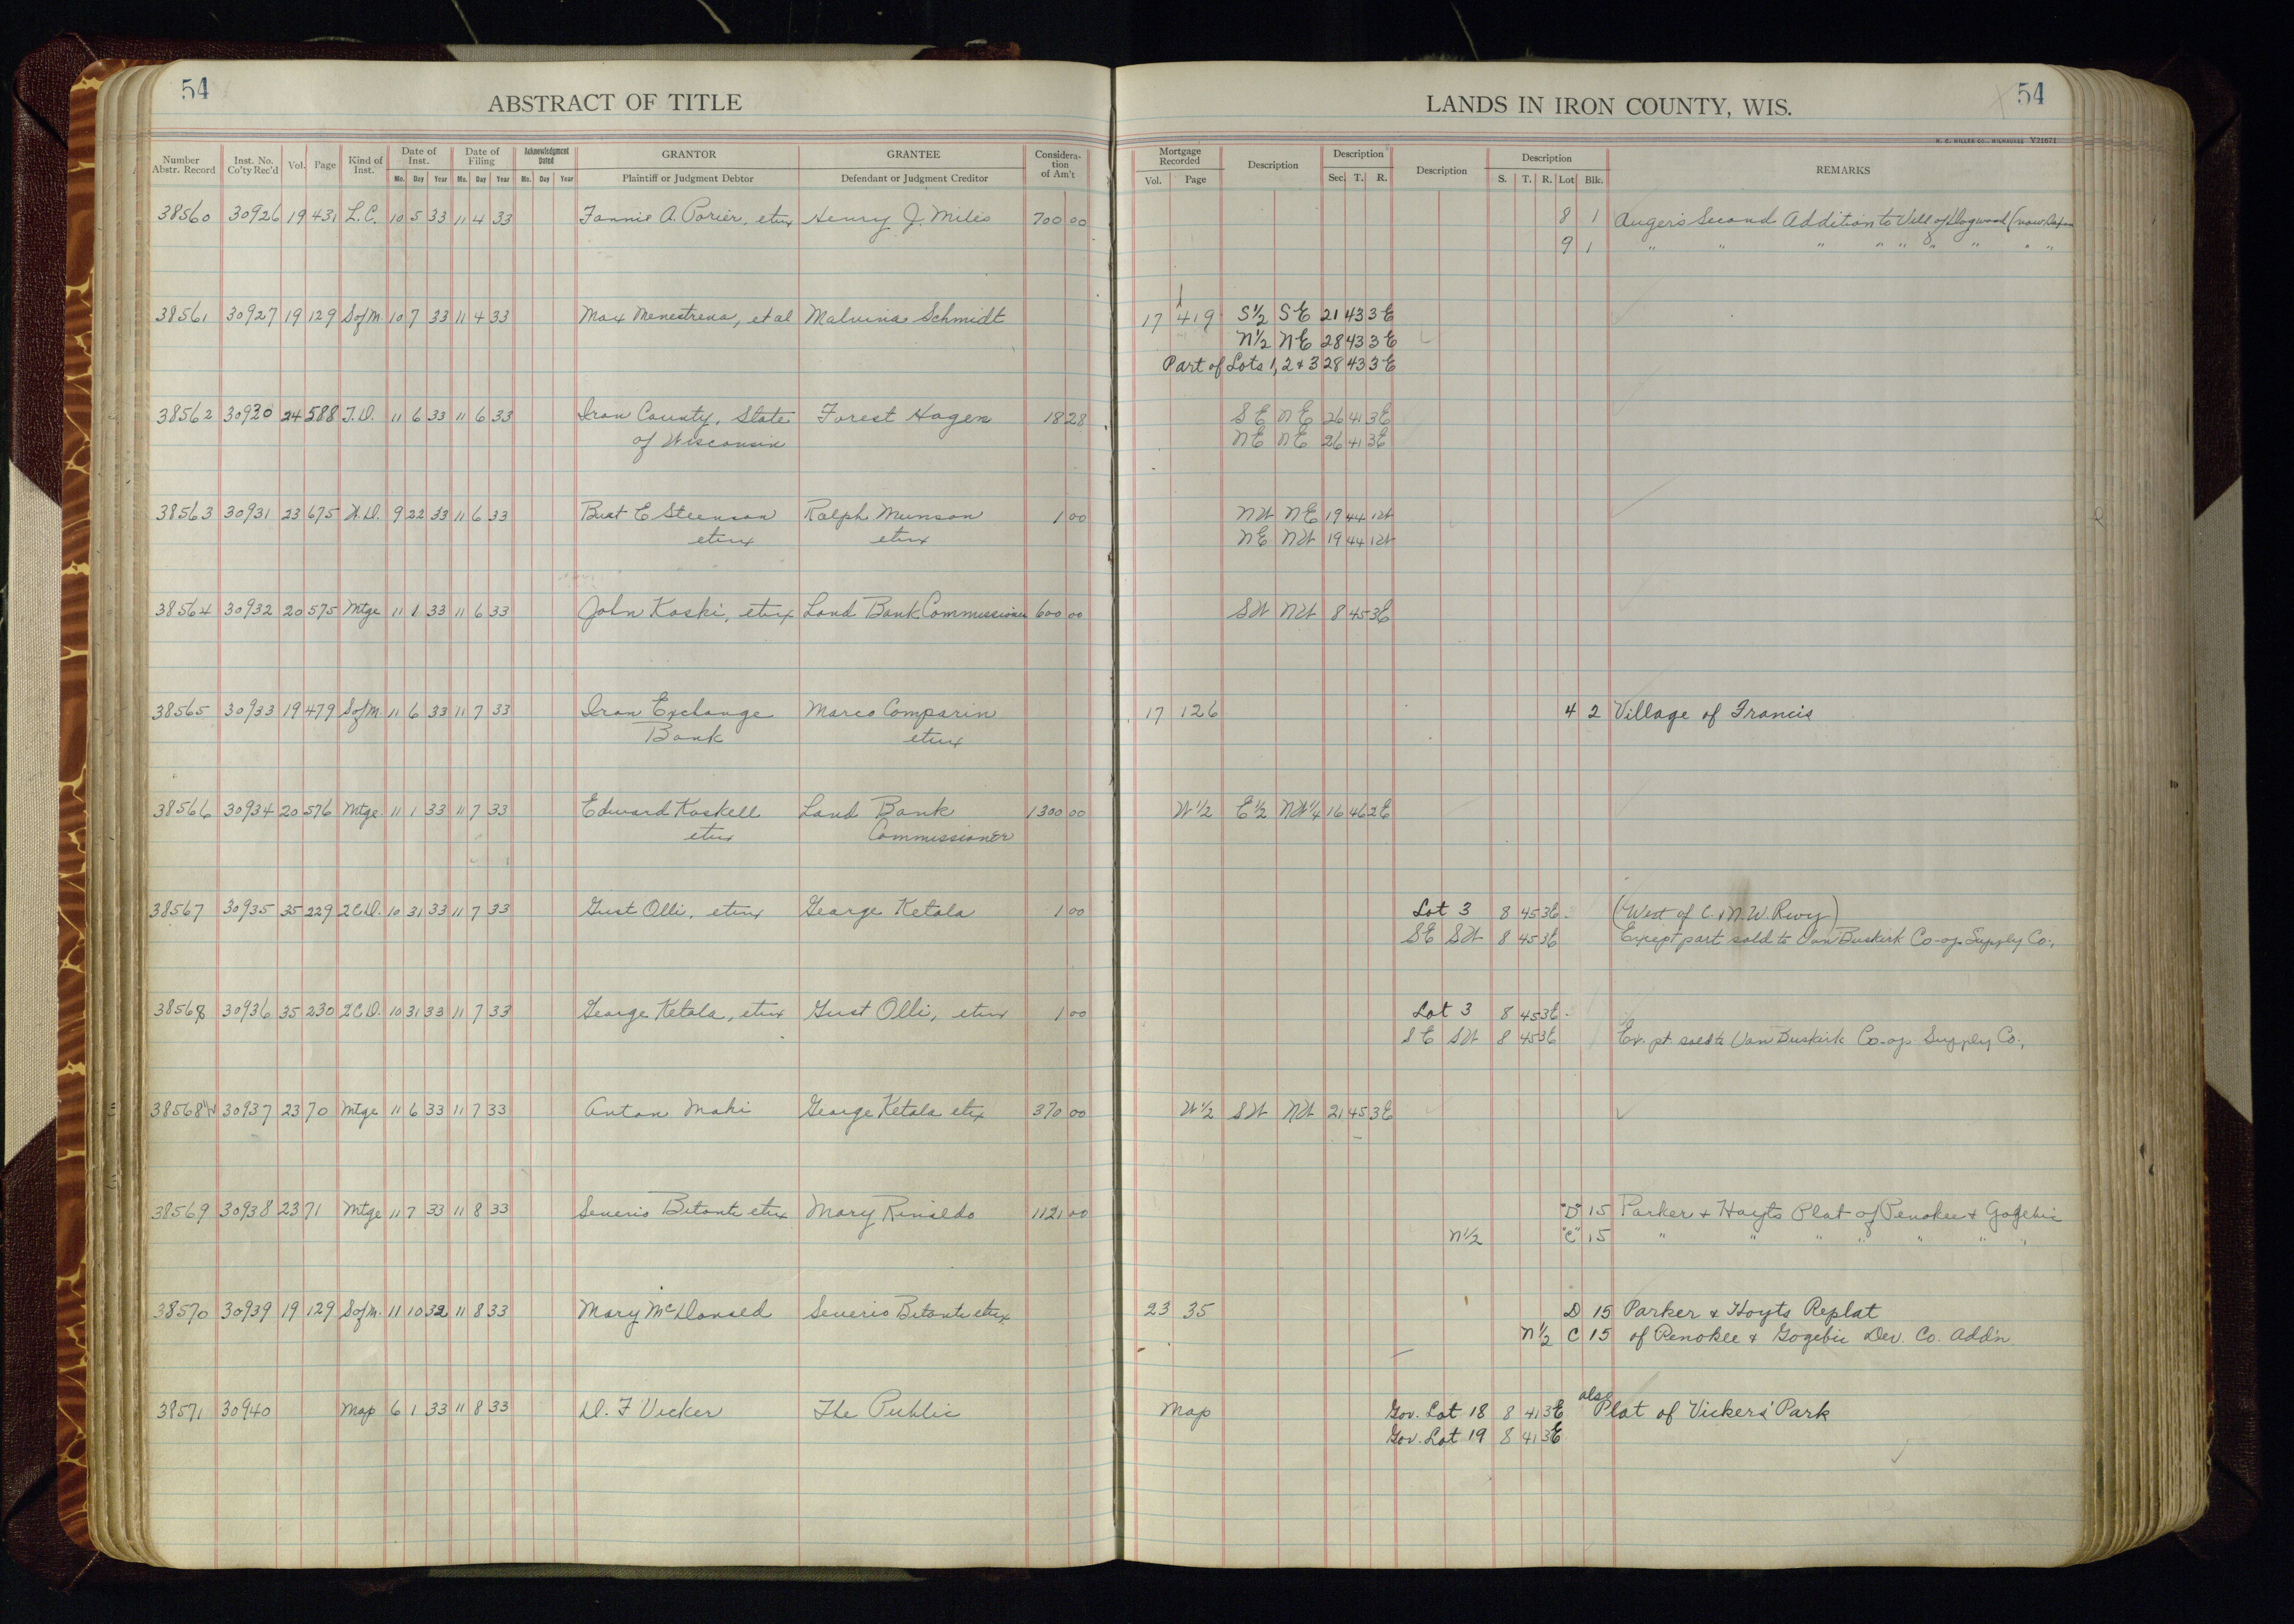 54
ABSTRACT OF TITLE
LANDS IN IRON COUNTY, WIS.
54
H. C. MILLER CO., MILWAUKEE V21671
Number Abstr. Record Inst. No. Co'ty Rec'd Vol. Page Kind of Inst. Date of Inst. Mo. Day Year Date of Filing Mo. Day Year Acknowledgment Dated Mo. Day Year GRANTOR Plaintiff or Judgment Debtor GRANTEE Defendant or Judgment Creditor Consideration of Am't
Mortgage Recorded Vol. Page Description Description Sec. T. R. Description Description S. T. R. Lot Blk. REMARKS
38560 30926 19 431 L.C. 10 5 33 11 4 33 Fannie A. Porier, etux Henry J. Miles 700 00 8 1 Auger's Second Addition to Vill of Dogwood (now
9 1 " " " " " " " " "
38561 30927 19 129 S of M. 10 7 33 11 4 33 Max Menestrena, et al Malvina Schmidt 17 419 S½ SE 21 43 3E
N½ NE 28 43 3E
Part of Lots 1, 2 + 3 28 43 3E
38562 30930 24 588 T.D. 11 6 33 11 6 33 Iron County, State Forest Hagen 18 28 SE NE 26 41 3E
of Wisconsin NE NE 26 41 3E
38563 30931 23 675 W.D. 9 22 33 11 6 33 Burt E Steenson Ralph Munson 1 00 NW NE 19 44 1W
etux etux NE NW 19 44 1W
38564 30932 20 575 Mtge 11 1 33 11 6 33 John Koski, etux Land Bank Commissioner 600 00 SW NW 8 45 3E
38565 30933 19 479 S of M. 11 6 33 11 7 33 Iron Exchange Marco Comparin 17 126 4 2 Village of Francis
Bank etux
38566 30934 20 576 Mtge. 11 1 33 11 7 33 Edward Koskell Land Bank 1300 00 W½ E½ NW¼ 16 46 2E
etux Commissioner
38567 30935 35 229 2CD. 10 31 33 11 7 33 Gust Olli, etux George Ketola 1 00 Lot 3 8 45 3E (West of C. & N.W. Rwy)
SE SW 8 45 3E Except part sold to Van Buskirk Co-op Supply Co.,
38568 30936 35 230 2CD. 10 31 33 11 7 33 George Ketola, etux Gust Olli, etux 1 00 Lot 3 8 45 3E
SE SW 8 45 3E Ex. pt. sold to Van Buskirk Co-op Supply Co.,
38568½ 30937 23 70 Mtge 11 6 33 11 7 33 Anton Maki George Ketola etux 370 00 W½ SW NW 21 45 3E
38569 30938 23 71 Mtge 11 7 33 11 8 33 Severio Bitonti etux Mary Rinaldo 1121 00 "D" 15 Parker + Hoyts Plat of Penokee + Gogebic
N½ "C" 15 " " " " " " "
38570 30939 19 129 S of M. 11 10 32 11 8 33 Mary McDonald Severio Bitonti etux 23 35 D 15 Parker & Hoyts Replat
N½ C 15 of Penokee & Gogebic Dev. Co. Add'n
38571 30940 Map 6 1 33 11 8 33 D. F Vicker The Public Map Gov. Lot 18 8 41 3E also Plat of Vickers' Park
Gov. Lot 19 8 41 3E